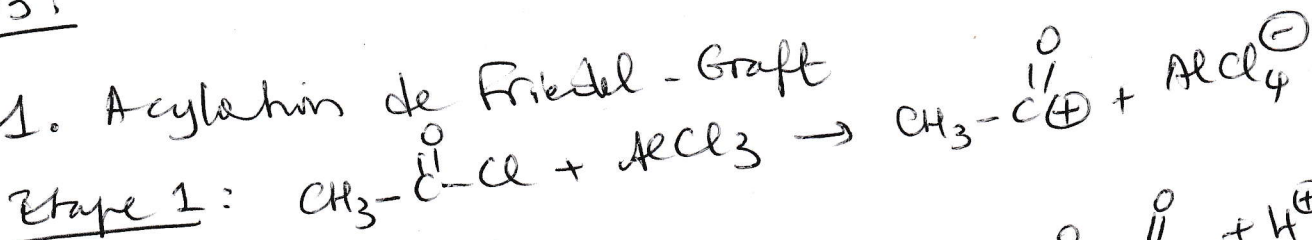 1. Acylation de Friedel-Graft
Etape 1: CH3-C(=O)-Cl + AlCl3 → CH3-C(=O)⊕ + AlCl4⊖
O + H⊕